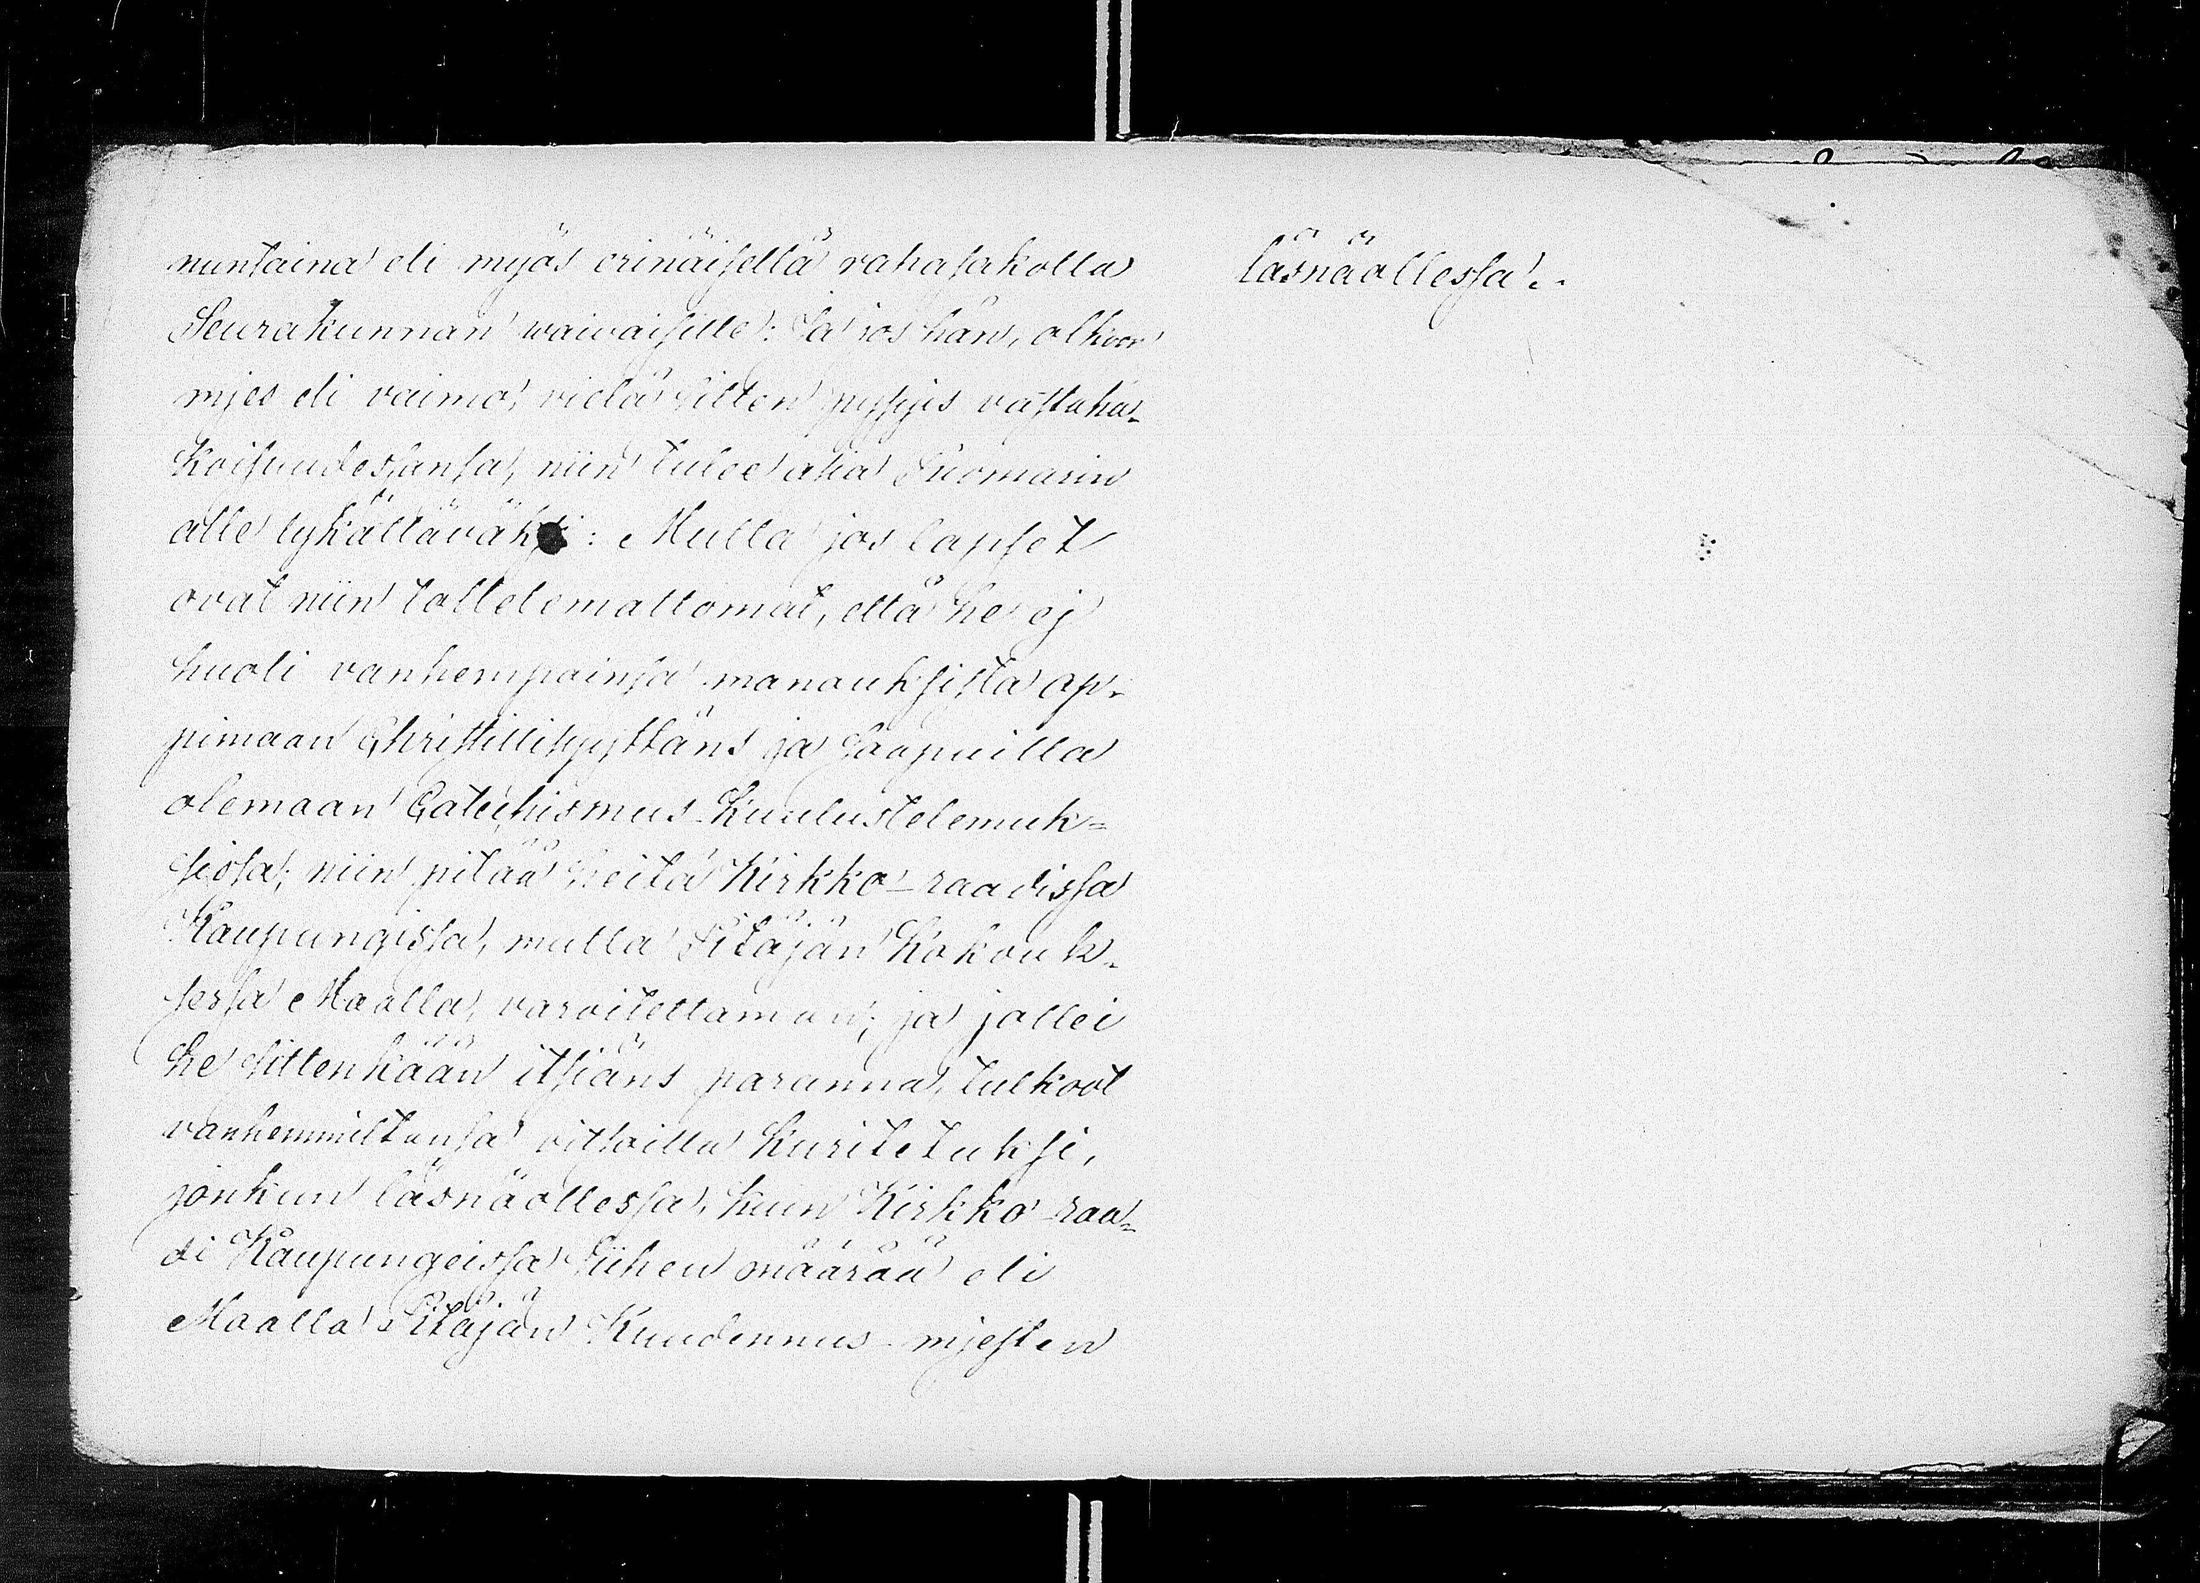 nuntaina eli myös erinäisellä rahasakolla
Seurakunnan waiwaisille: Ja jos hän, olkoon
mjes eli vaimo, vielä sitten pysyis vastaha-
koisuudessansa, niin tulee asia Duomarin
alle lykättäväksi: Mutta jos lapset
ovat niin tottelemattomat, että he ej
huoli vanhempainsa manauksista op-
pimaan Christillisyyttäns ja saapuilla
olemaan Catechismus-Kuulustelemuk-
sissa; niin pitää heitä Kirkko-raadissa
Kaupungissa, mutta Pitäjän Kokouk-
sessa Maalla, varoitettaman; ja jollei
he sittenkään itsiäns paranna, tulkoot
vanhemmiltansa vitsoilla kuritetuksi,
jonkun läsnäollessa, kuin Kirkko-raa-
di Kaupungeissa siihen määrää eli
Maalla Pitäjän Kuudennus-mjesten
läsnäollessa.